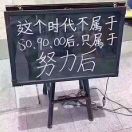 这个时代不属于
80.90.00后.只属于
努力后